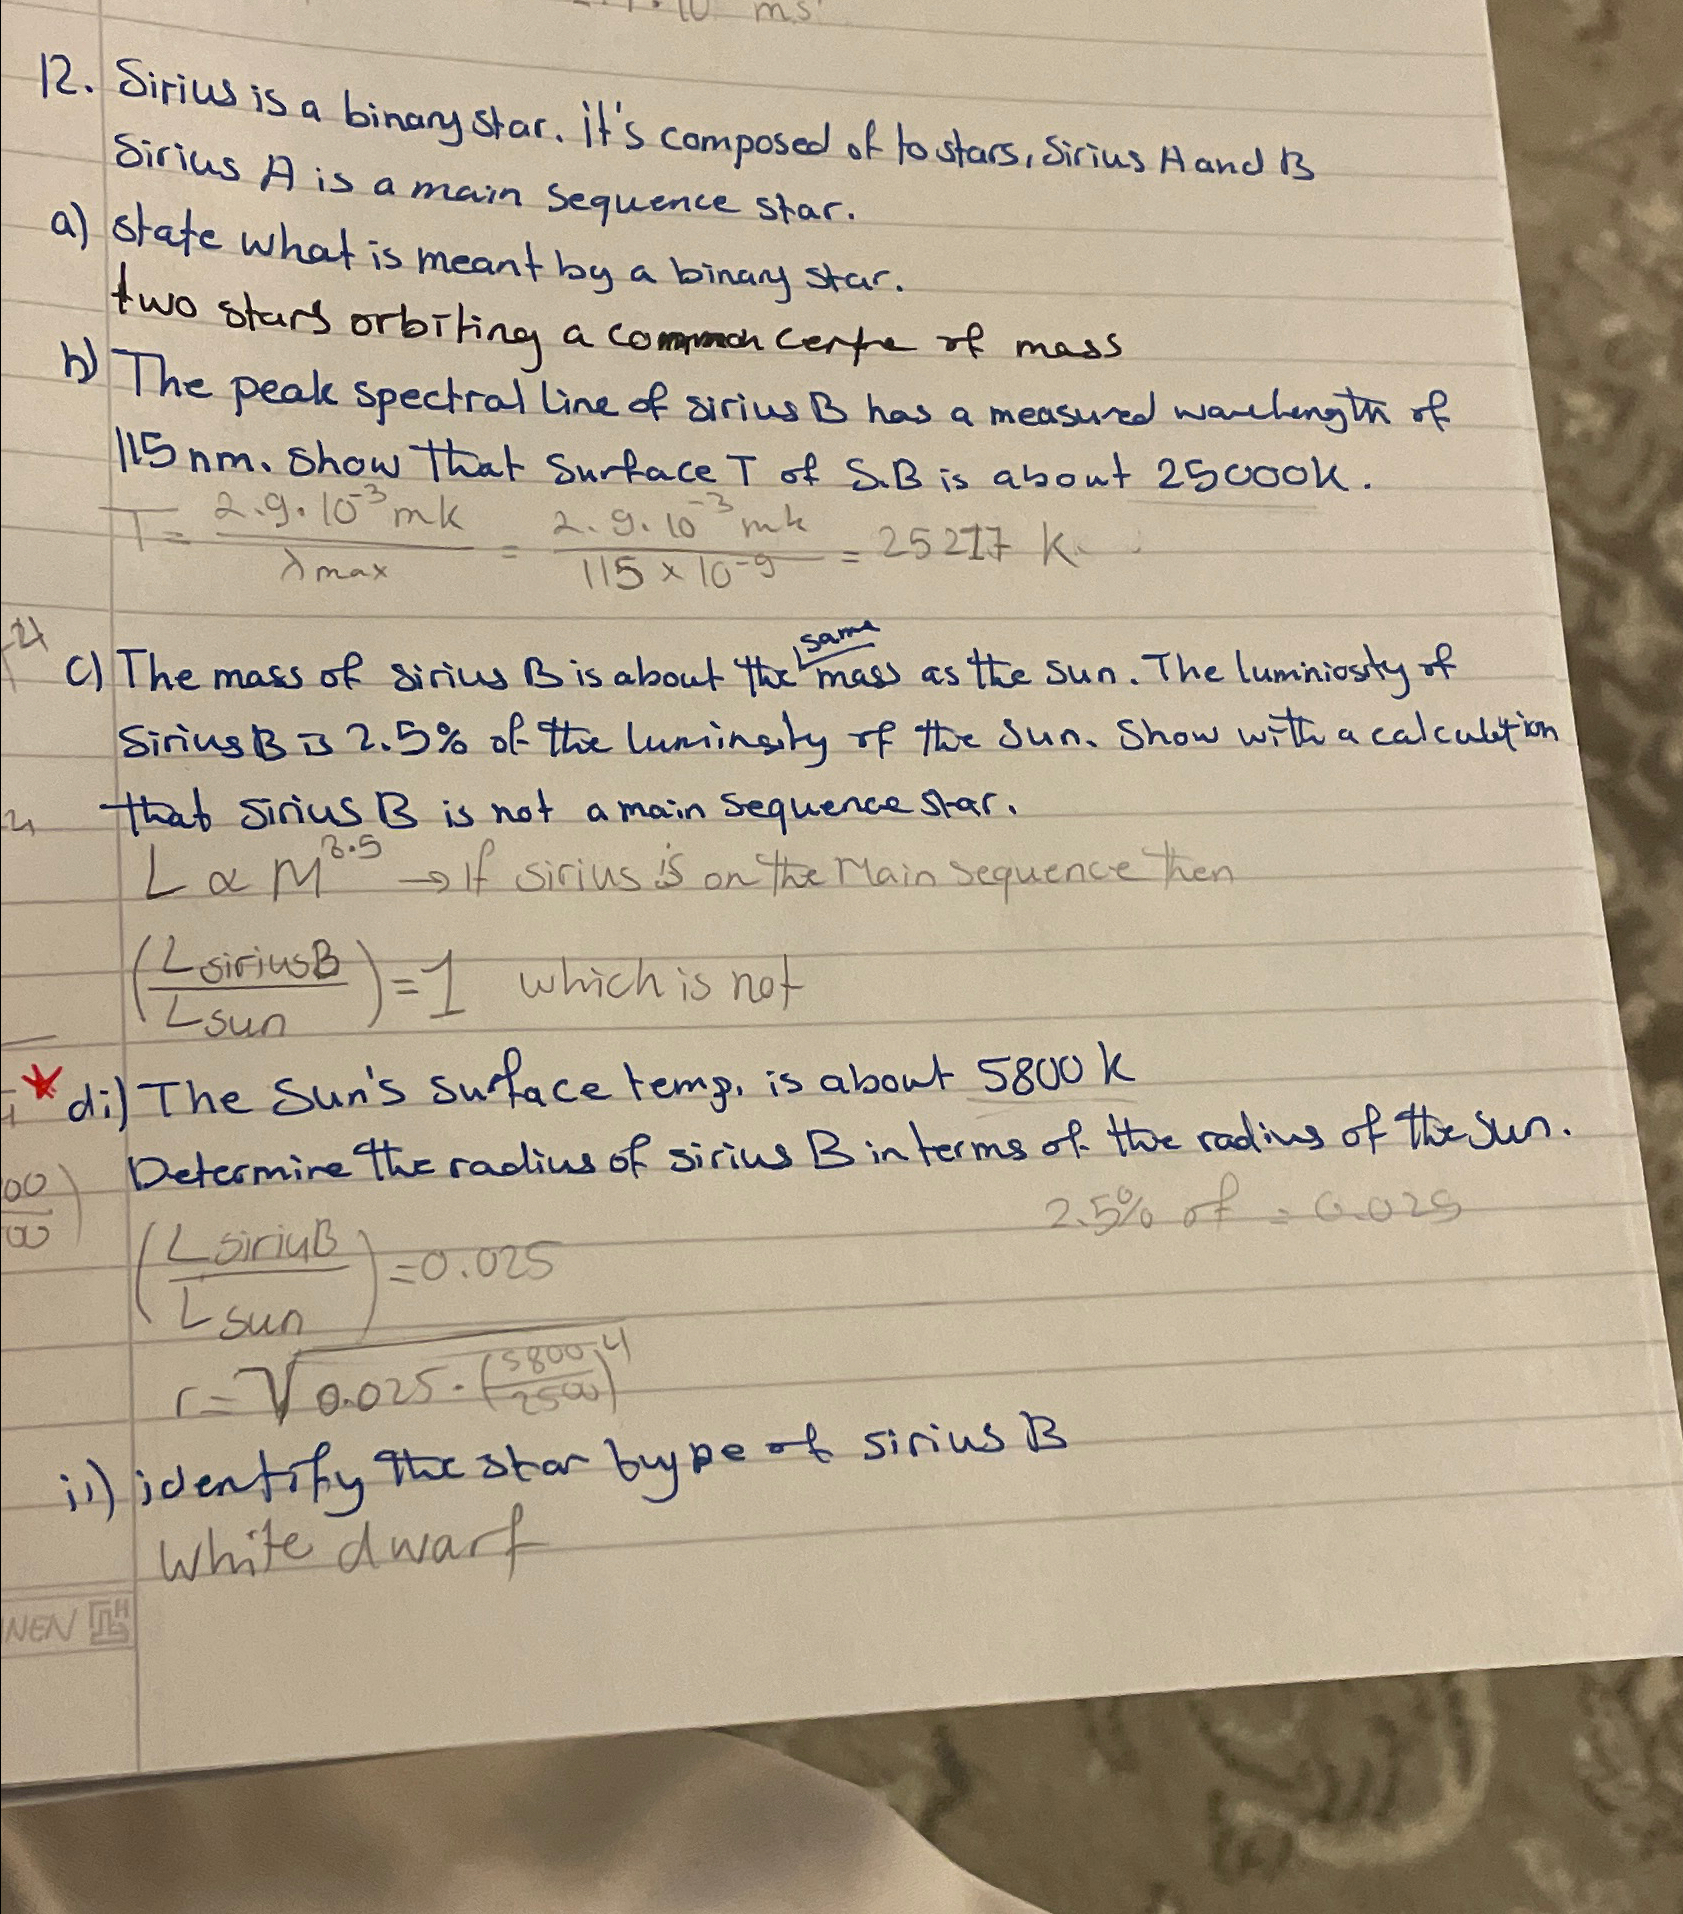 12. Sirius is a binary star. it's composed of to stars, Sirius A and B
Sirius A is a main sequence star.
a) state what is meant by a binary star.
two stars orbiting a common centre of mass
b) The peak spectral line of sirius B has a measured wavelength of
115 nm. Show that Surface T of S.B is about 25000K.
T = 2.9·10⁻³ mk / λmax = 2.9·10⁻³ mk / 115 × 10⁻⁹ = 25217 K
c) The mass of sirius B is about the same mass as the sun. The luminiosity of
Sirius B is 2.5% of the luminosity of the Sun. Show with a calculation
that Sirius B is not a main sequence star.
L ∝ M³·⁵ → If sirius is on the Main sequence then
(L siriusB / L sun) = 1 which is not
di) The Sun's surface temp. is about 5800 k
Determine the radius of sirius B in terms of the radius of the sun.
2.5% of = 0.025
(L siriuB / L sun) = 0.025
r = √0.025 · (5800 / 2500)⁴
ii) identify the star type of sirius B
White dwarf